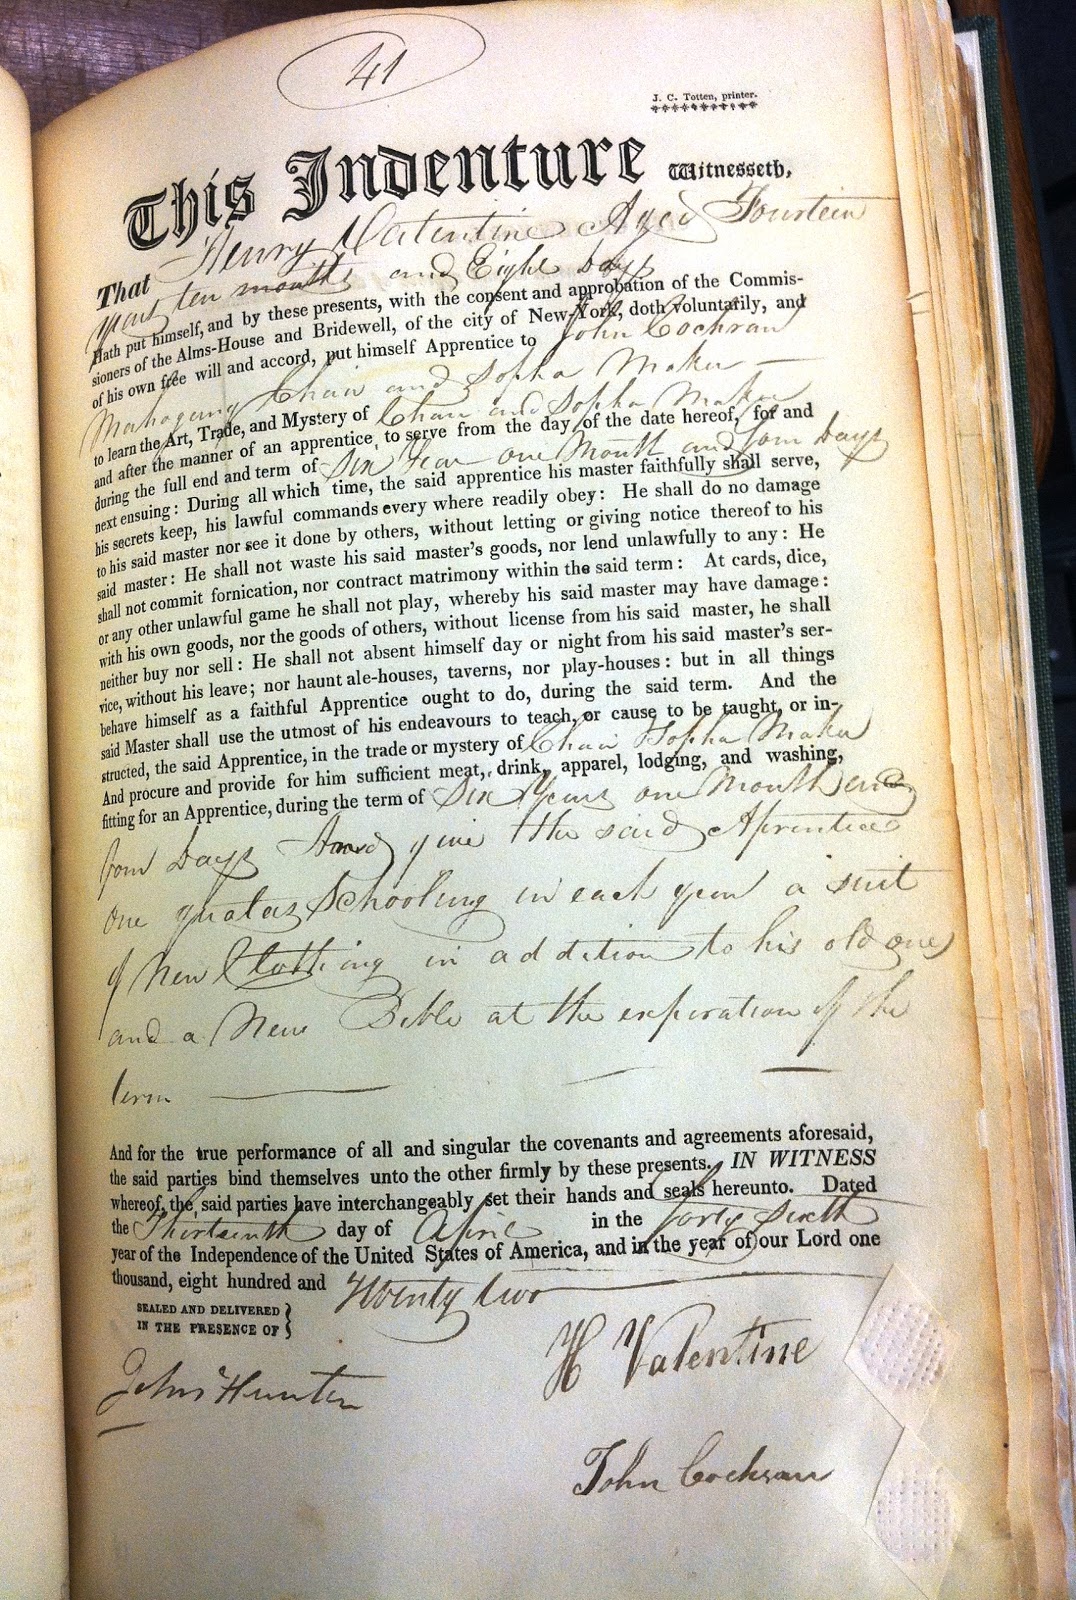 41
J. C. Totten, printer.
This Indenture Witnesseth,
That Henry Valentine Aged Fourteen
years ten months and Eight Days
Hath put himself, and by these presents, with the consent and approbation of the Commis-
sioners of the Alms-House and Bridewell, of the city of New-York, doth voluntarily, and
of his own free will and accord, put himself Apprentice to John Cochran
Mahogany Chair and Sopha Maker
to learn the Art, Trade, and Mystery of Chair and Sopha Maker
and after the manner of an apprentice, to serve from the day of the date hereof, for and
during the full end and term of Six Year one Month and four Days
next ensuing: During all which time, the said apprentice his master faithfully shall serve,
his secrets keep, his lawful commands every where readily obey: He shall do no damage
to his said master nor see it done by others, without letting or giving notice thereof to his
said master: He shall not waste his said master's goods, nor lend unlawfully to any: He
shall not commit fornication, nor contract matrimony within the said term: At cards, dice,
or any other unlawful game he shall not play, whereby his said master may have damage:
with his own goods, nor the goods of others, without license from his said master, he shall
neither buy nor sell: He shall not absent himself day or night from his said master's ser-
vice, without his leave; nor haunt ale-houses, taverns, nor play-houses: but in all things
behave himself as a faithful Apprentice ought to do, during the said term. And the
said Master shall use the utmost of his endeavours to teach, or cause to be taught, or in-
structed, the said Apprentice, in the trade or mystery of Chair Sopha Maker
And procure and provide for him sufficient meat, drink, apparel, lodging, and washing,
fitting for an Apprentice, during the term of Six Years one Month and
four Days And give the said Aprentice
one quater Schooling in each year a suit
of New Clothing in addition to his old ones
and a New Bible at the expiration of the
term
And for the true performance of all and singular the covenants and agreements aforesaid,
the said parties bind themselves unto the other firmly by these presents. IN WITNESS
whereof, the said parties have interchangeably set their hands and seals hereunto. Dated
the Thirteenth day of April in the forty sixth
year of the Independence of the United States of America, and in the year of our Lord one
thousand, eight hundred and Twenty two
SEALED AND DELIVERED }
IN THE PRESENCE OF }
H Valentine
John Hunter
John Cochran